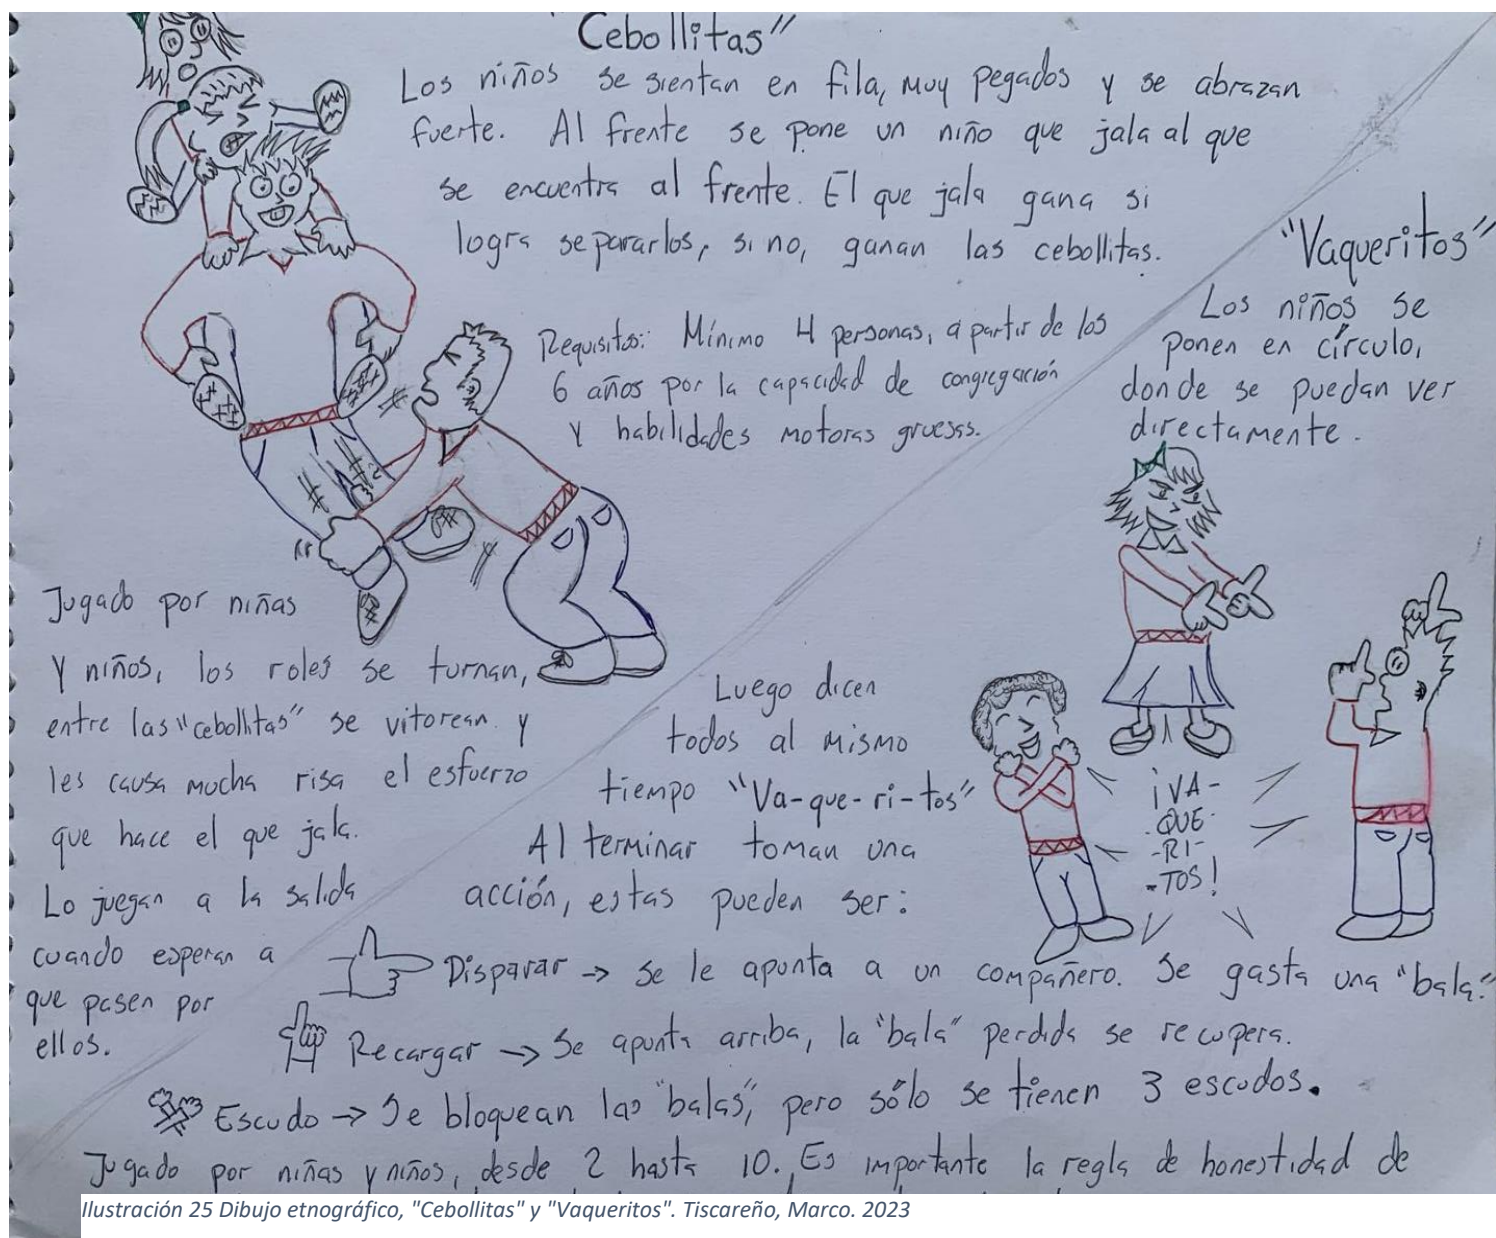 "Cebollitas"
Los niños se sientan en fila, muy pegados y se abrazan
fuerte. Al frente se pone un niño que jala al que
se encuentra al frente. El que jala gana si
logra separarlos, si no, ganan las cebollitas.
Requisitos: Mínimo 4 personas, a partir de los
6 años por la capacidad de congregación
y habilidades motoras gruesas.
Jugado por niñas
y niños, los roles se turnan,
entre las "cebollitas" se vitorean y
les causa mucha risa el esfuerzo
que hace el que jala.
Lo juegan a la salida
cuando esperan a
que pasen por
ellos.
"Vaqueritos"
Los niños se
ponen en círculo,
donde se puedan ver
directamente.
Luego dicen
todos al mismo
tiempo "Va-que-ri-tos"
Al terminar toman una
acción, estas pueden ser:
¡VA-
-QUE-
-RI-
-TOS!
Disparar → Se le apunta a un compañero. Se gasta una "bala."
Recargar → Se apunta arriba, la "bala" perdida se recupera.
Escudo → Se bloquean las "balas", pero sólo se tienen 3 escudos.
Jugado por niñas y niños, desde 2 hasta 10. Es importante la regla de honestidad de
Ilustración 25 Dibujo etnográfico, "Cebollitas" y "Vaqueritos". Tiscareño, Marco. 2023